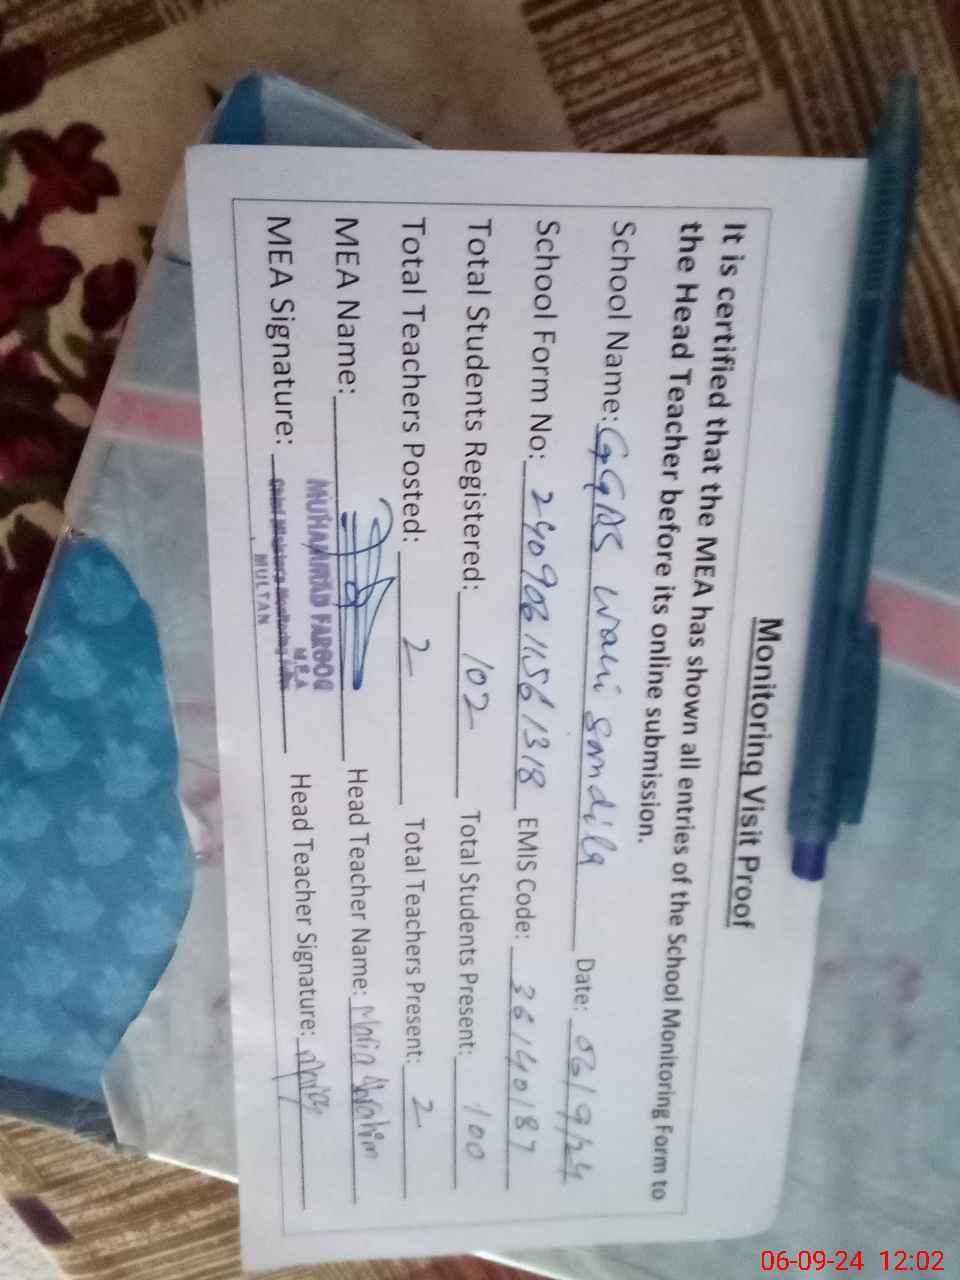 Monitoring Visit Proof
It is certified that the MEA has shown all entries of the School Monitoring Form to
the Head Teacher before its online submission.
School Name: GGPS Wali Sandila Date: 06/9/24
School Form No: 24090611561318 EMIS Code: 36140187
Total Students Registered: 102 Total Students Present: 100
Total Teachers Posted: 2 Total Teachers Present: 2
MEA Name: Head Teacher Name: Maria Ibrahim
MUHAMMAD FAROOQ
M.E.A
MEA Signature: Head Teacher Signature:
MULTAN
06-09-24 12:02